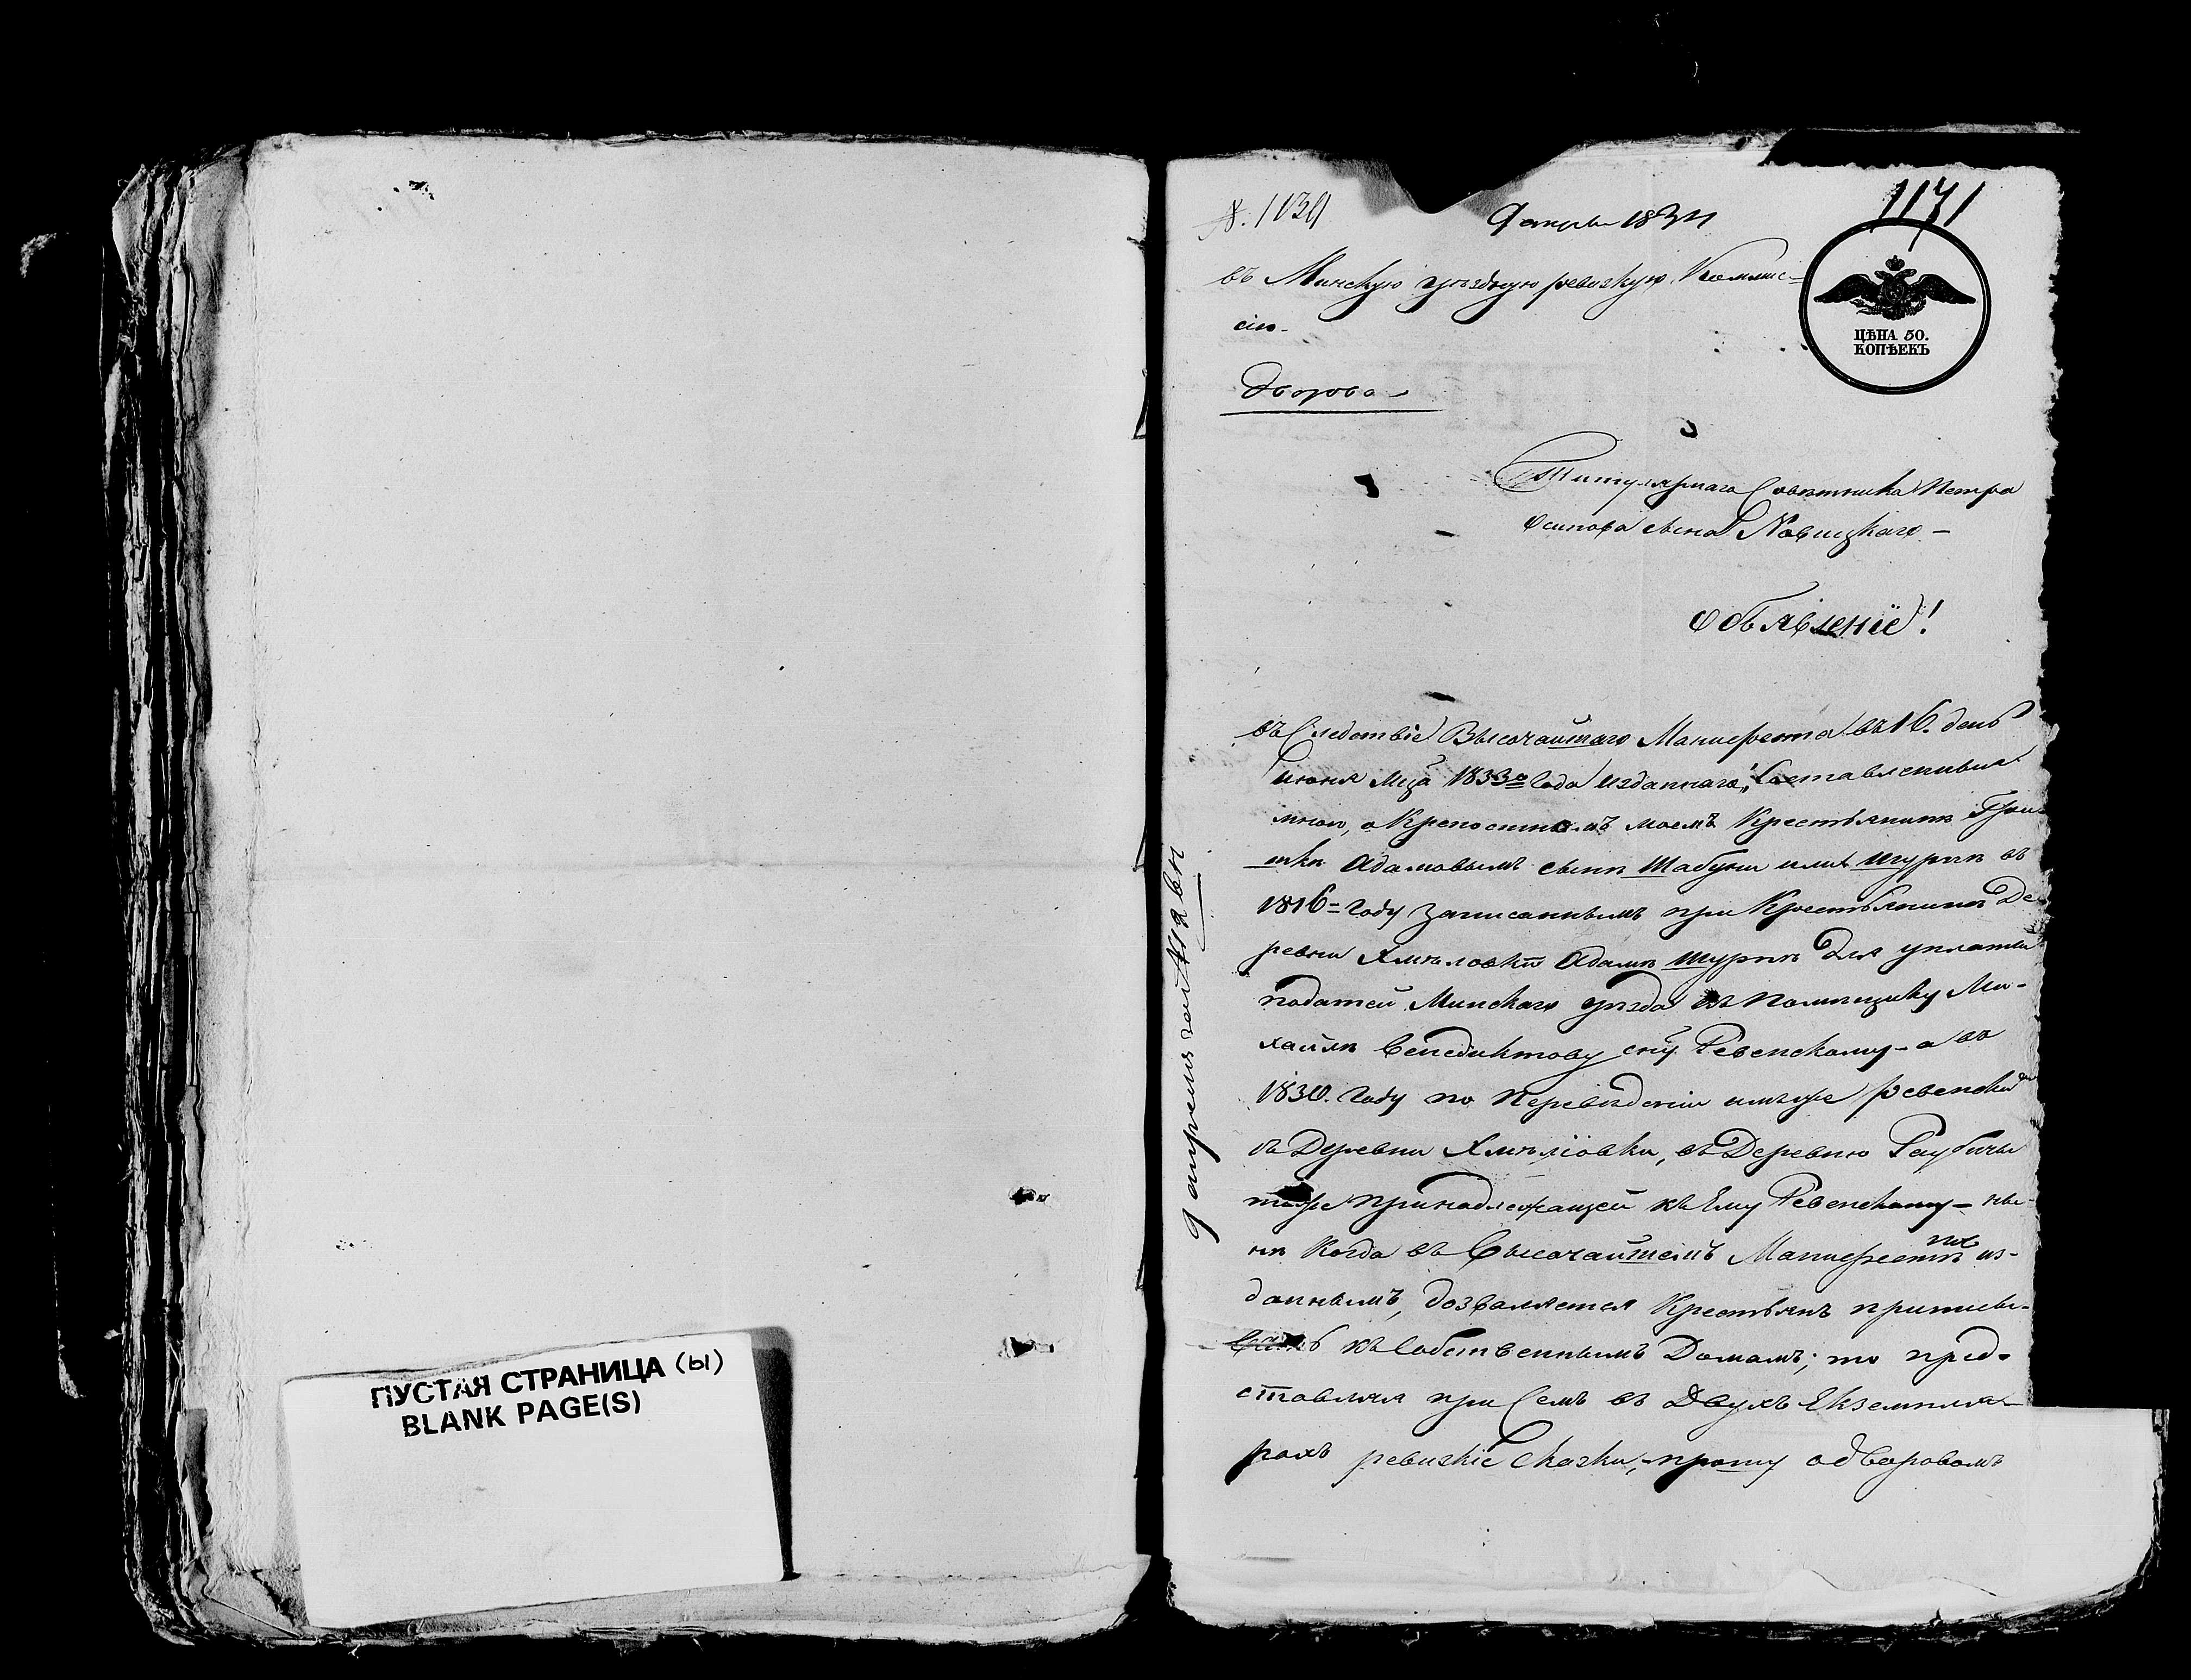 ПУСТАЯ СТРАНИЦА (Ы)
BLANK PAGE(S)
1171
ЦѢНА 50.
КОПѢЕКЪ
въ Минскую уѣздную ревизкую Коммис=
сію.
Титулярнаго Совѣтника Петра
Осипова сына Новицкаго –
Объявленіе!
въ Следствіе Высочайшаго Манифеста въ 16. день
июня Мца 1833го Года изданнаго, Составленныя
мною, о Крепостномъ моемъ Крестьянинѣ Гри-
шкѣ Адамовымъ сынѣ Шабуни или Шурпѣ въ
1816= Году записаннымъ при Крестьянинѣ Де-
ревни Хмѣловки Адамѣ Шурпѣ Для уплаты
податей Минскаго уѣзда Помѣщику Ми-
хайлѣ Венедиктову сну Ревенскому – а въ
1830. Году по Перевѣденіи имъ же Ревенски
въ Деревни Хмѣліовки, въ Деревню Раубичи
тоже принадлежащей къ Ему Ревенскому – ны-
нѣ Когда въ Высочайшемъ Манифестѣ из-
даннымъ, дозваляется Крестьянъ приписы-
къ Собственнымъ Домамъ; то пред-
ставляя при Семъ въ Двухъ Екземпля-
рахъ ревизкіе Сказки, – прошу